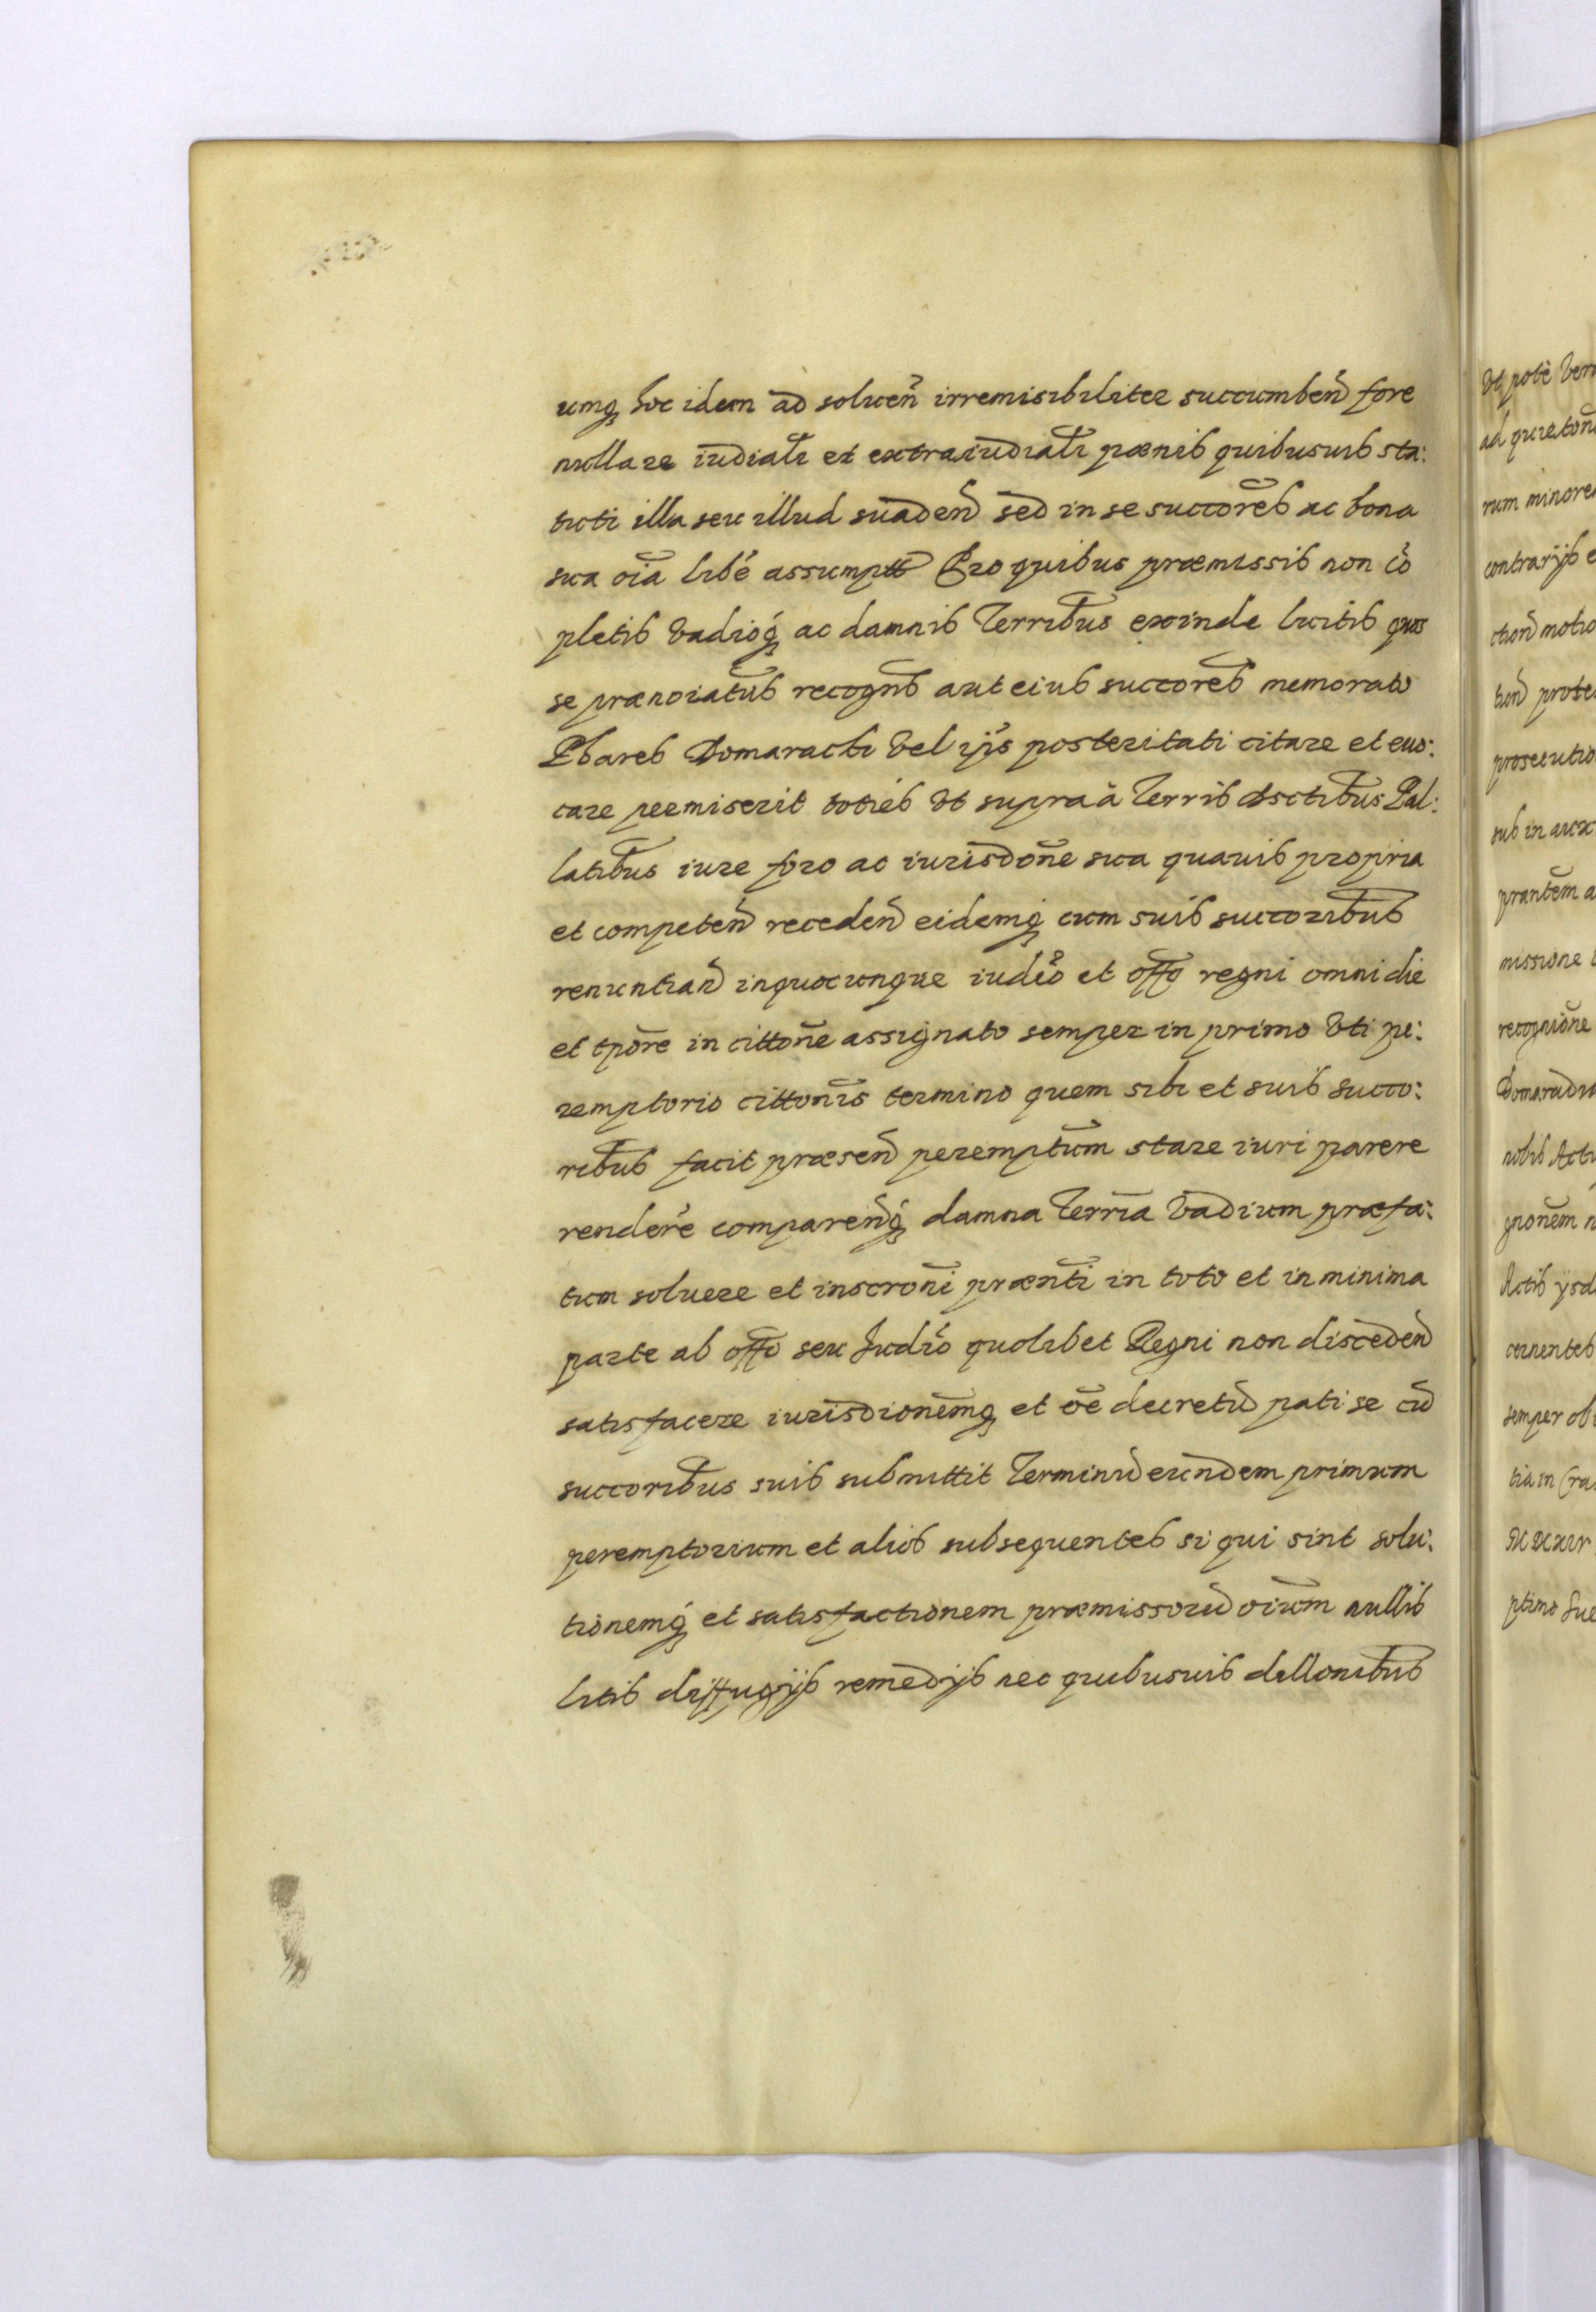 umq̃ hoc idem ad soluen̄ irremisibiliter succumben̄ fore
nullare iudialr̄ et extraiudialr̄ pœnis quibusuis sta:
tuti illa seu illud suaden̄ sed in se succōres ac bona
sua oīa libe assumptt Pro quibus præmissis non cō
pletis Vadioq̃ ac damnis Terribus exinde lucitis quos
se prænoiatus recogns aut eius succores memorato
Phares Domarachi Vel ijs posteritati citare et euo:
care permiserit toties Vt supra à Terris Asctibus Pal:
latibus iure foro ac iurisdone sua quauis propria
et competen̄ receden̄ eidemq̃ cum suis succoribus
renuntian̄ inquocunque iudio et offo regni omni die
et tpore in cittone assignato semper in primo Vti pe:
remptorio cittonis termino quem sibi et suis succo:
ribus facit præsen̄ peremptum stare iuri parere
rendere comparenq̃ damna Terria Vadium præfa:
tum soluere et inscroni prænti in toto et in minima
parte ab offo seu Judio quolibet Regni non disceden̄
satisfacere iurisdionemq̃ et oē decretū pati se cū
succoribus suis submittit Terminū eundem primum
peremptorium et alios subsequentes si qui sint solu:
tionemq̃ et satisfactionem præmissorū oium nullis
litis diffugijs remedijs nec quibusuis dillonibus
Vt pote
ad quieton
rum minore
contrarijs e
ction motio
tion prote
prosecutio
sub in aux
prantem a
missione
recognione
Domarad
nobis Act
gnonem n
Actis ysd
cernentes
semper ob
tia in Cra
ptimo Sue